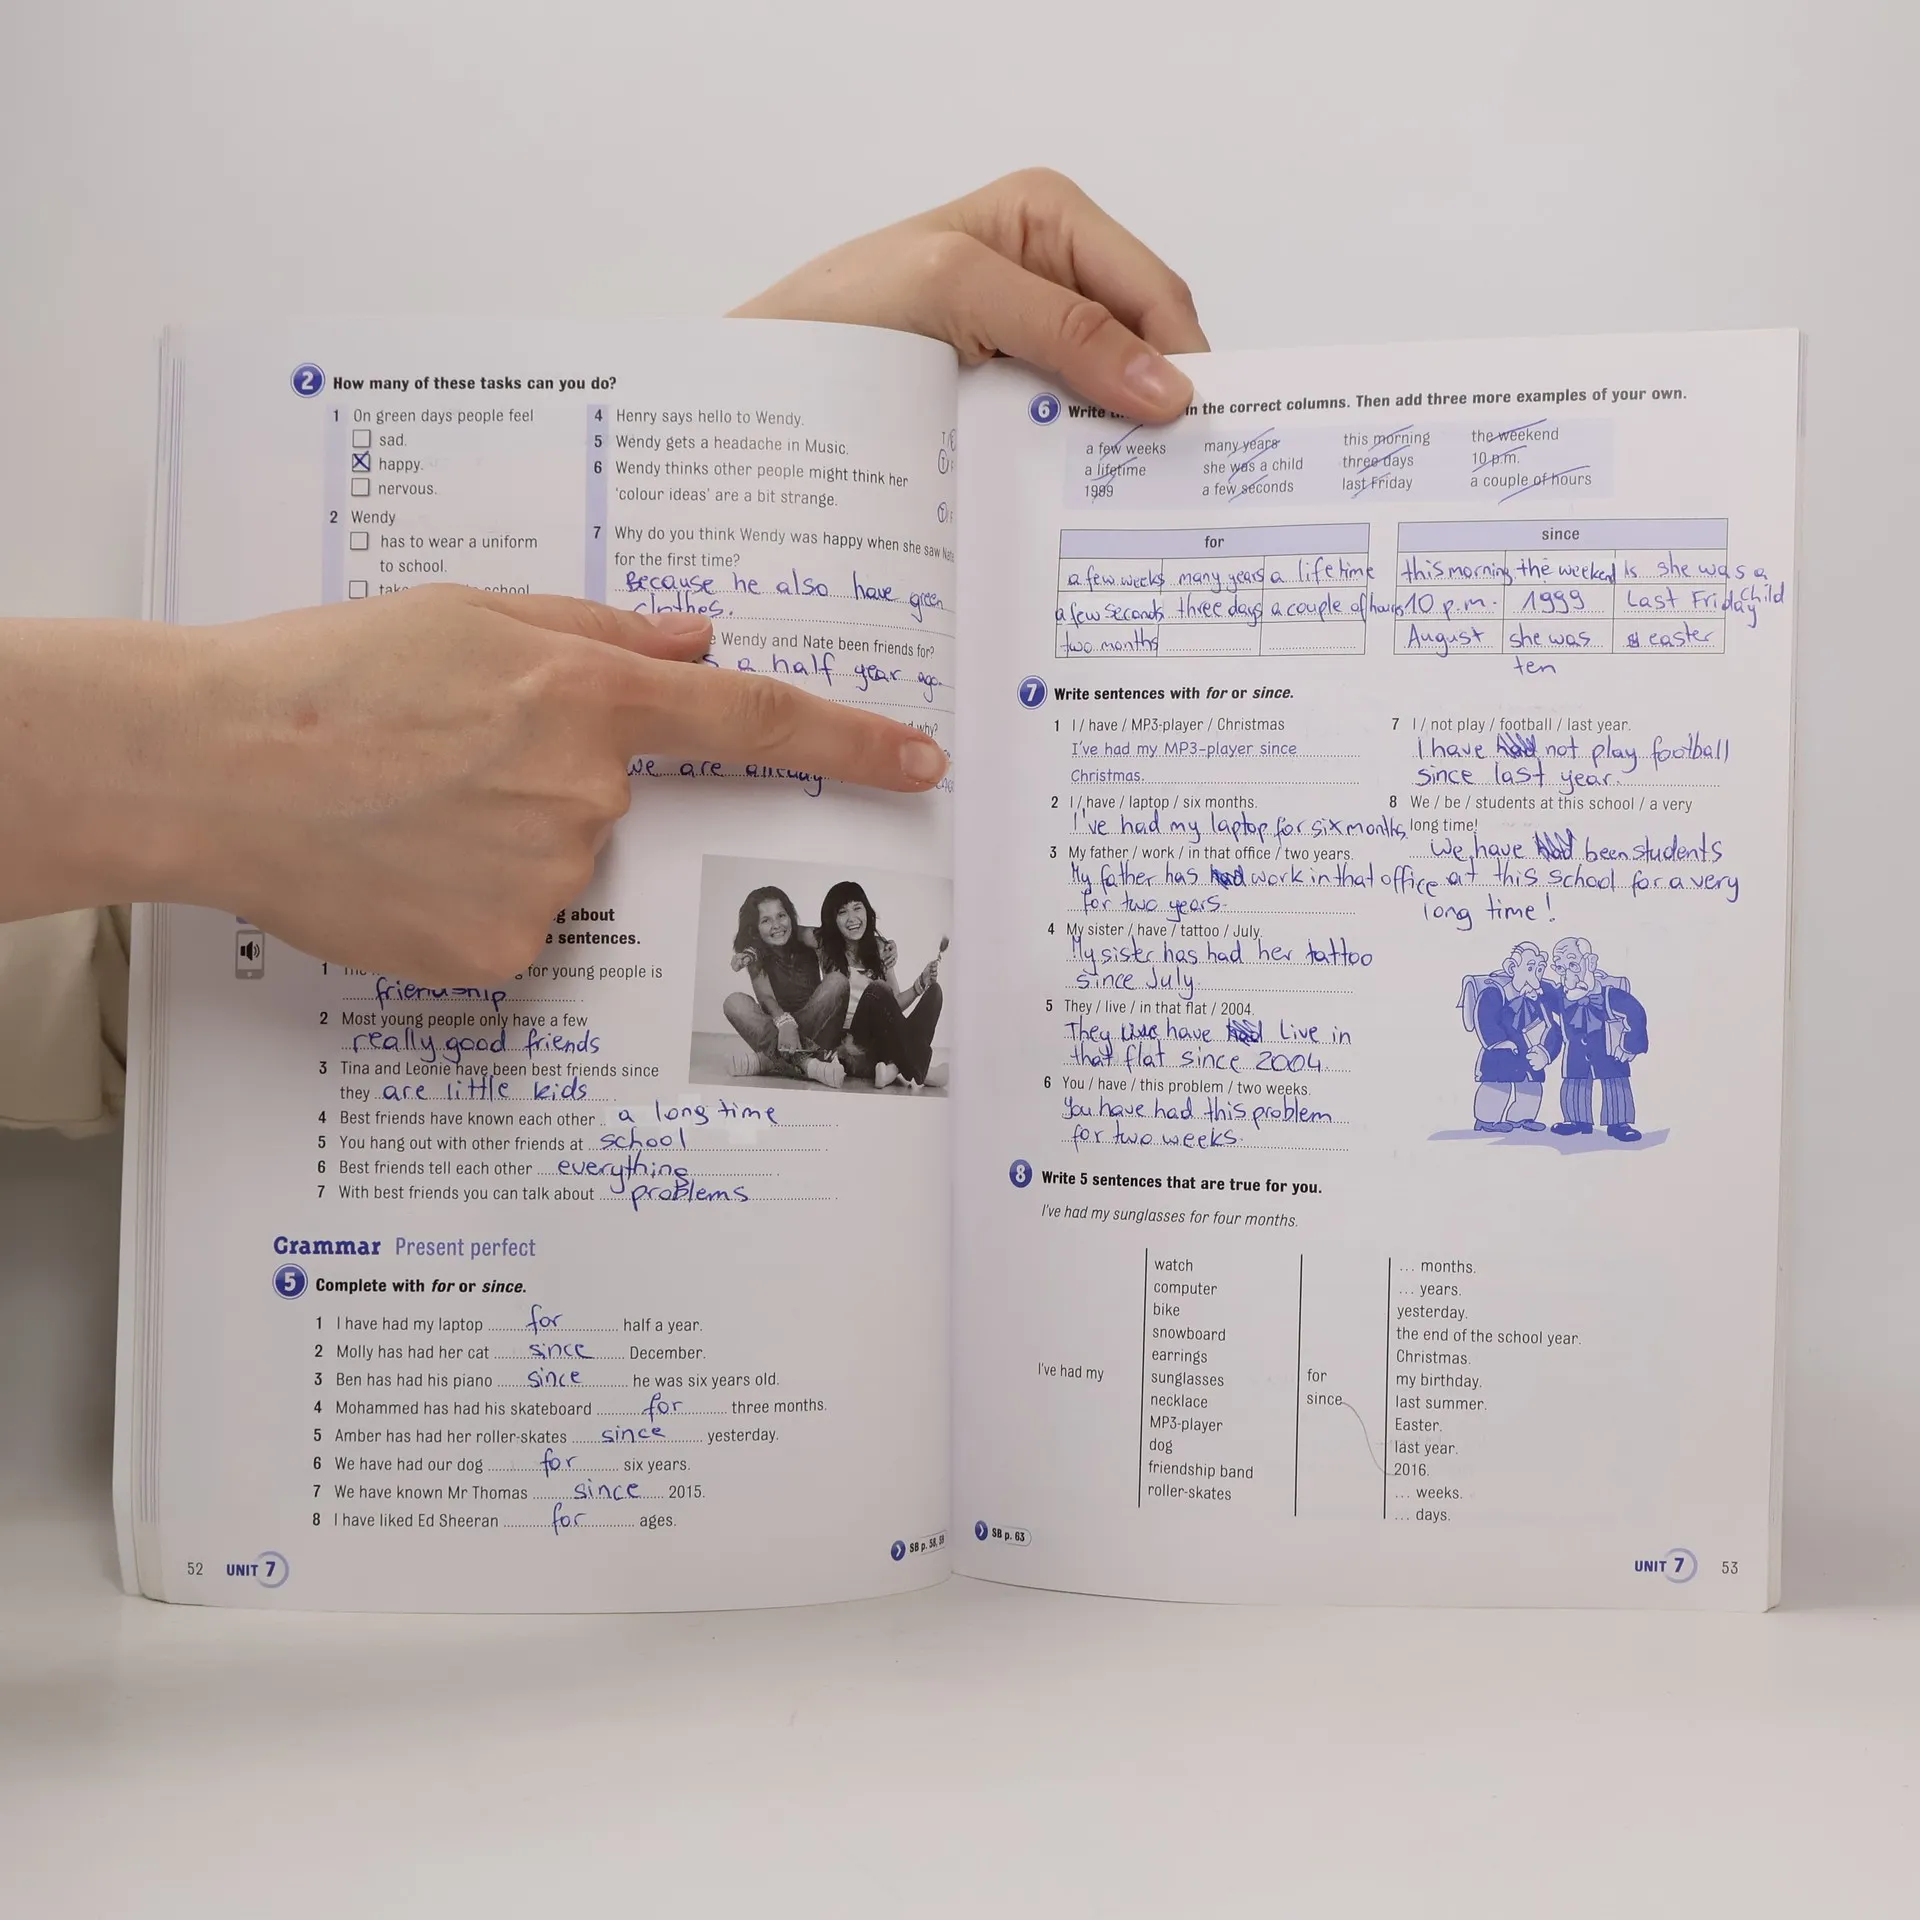 2 How many of these tasks can you do?
1 On green days people feel
sad.
happy.
nervous.
2 Wendy
has to wear a uniform
to school.
4 Henry says hello to Wendy.
5 Wendy gets a headache in Music.
6 Wendy thinks other people might think her
'colour ideas' are a bit strange.
7 Why do you think Wendy was happy when she saw Nate
for the first time?
Because he also have green
clothes.
Wendy and Nate been friends for?
a half year ago.
why?
we are
g about
sentences.
1 for young people is
friendship
2 Most young people only have a few
really good friends
3 Tina and Leonie have been best friends since
they are little kids
4 Best friends have known each other a long time
5 You hang out with other friends at school
6 Best friends tell each other everything
7 With best friends you can talk about problems
Grammar Present perfect
5 Complete with for or since.
1 I have had my laptop for half a year.
2 Molly has had her cat since December.
3 Ben has had his piano since he was six years old.
4 Mohammed has had his skateboard for three months.
5 Amber has had her roller-skates since yesterday.
6 We have had our dog for six years.
7 We have known Mr Thomas since 2015.
8 I have liked Ed Sheeran for ages.
SB p. 58, 59
52 UNIT 7
6 Write in the correct columns. Then add three more examples of your own.
a few weeks many years this morning the weekend
a lifetime she was a child three days 10 p.m.
1999 a few seconds last Friday a couple of hours
for since
a few weeks many years a lifetime this morning the weekend she was a child
a few seconds three days a couple of hours 10 p.m. 1999 Last Friday
two months August she was ten easter
7 Write sentences with for or since.
1 I / have / MP3-player / Christmas
I've had my MP3-player since
Christmas.
2 I / have / laptop / six months.
I've had my laptop for six months.
3 My father / work / in that office / two years.
My father has work in that office
for two years.
4 My sister / have / tattoo / July.
My sister has had her tattoo
since July.
5 They / live / in that flat / 2004.
They have Live in
that flat since 2004.
6 You / have / this problem / two weeks.
You have had this problem
for two weeks.
7 I / not play / football / last year.
I have not play football
since last year.
8 We / be / students at this school / a very
long time!
We have been students
at this school for a very
long time!
8 Write 5 sentences that are true for you.
I've had my sunglasses for four months.
I've had my
watch
computer
bike
snowboard
earrings
sunglasses
necklace
MP3-player
dog
friendship band
roller-skates
for
since
... months.
... years.
yesterday.
the end of the school year.
Christmas.
my birthday.
last summer.
Easter.
last year.
2016.
... weeks.
... days.
SB p. 63
UNIT 7 53